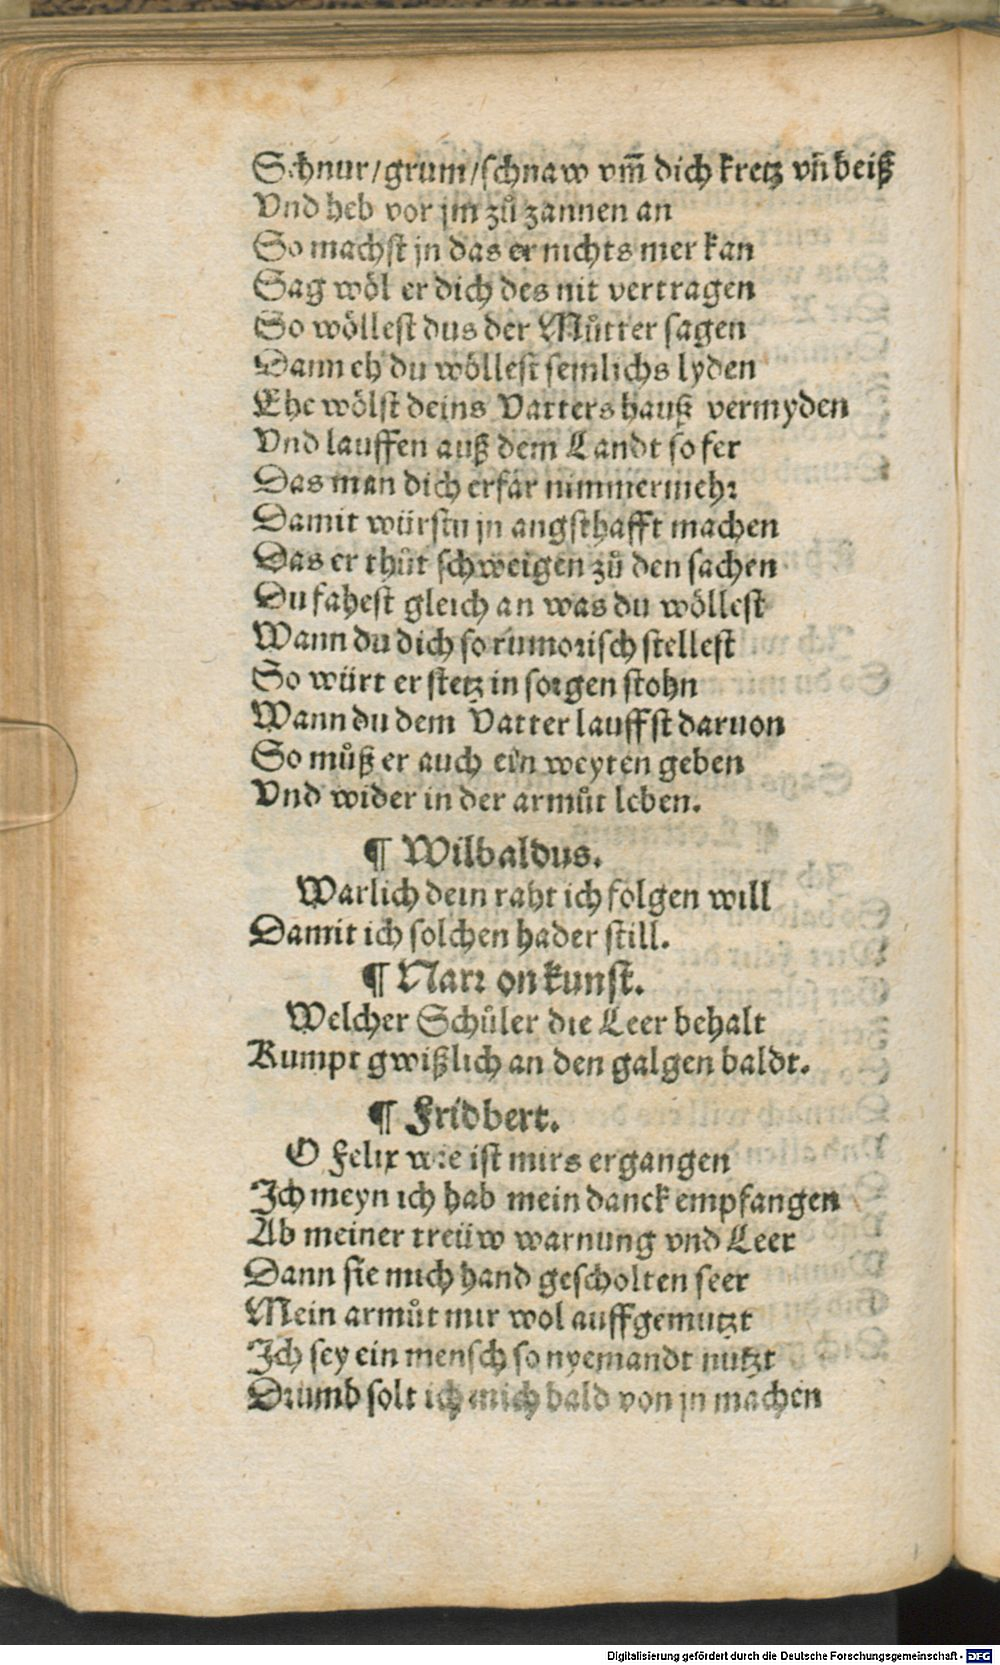 Schnur/grum/schnaw vm̃ dich kretz vñ beiß
Vnd heb vor jm zů zannen an
So machst jn das er nichts mer kan
Sag wöl er dich des nit vertragen
So wöllest dus der Můtter sagen
Dann eh du wöllest semlichs lyden
Ehe wölst deins Vatters hauß vermyden
Vnd lauffen auß dem Landt so fer
Das man dich erfar nimmermehr
Damit würstu jn angsthafft machen
Das er thůt schweigen zů den sachen
Du fahest gleich an was du wöllest
Wann du dich so rumorisch stellest
So würt er stetz in sorgen stohn
Wann du dem Vatter lauffst daruon
So můß er auch ein weyten geben
Vnd wider in der armůt leben.
¶ Wilbaldus.
Warlich dein raht ich folgen will
Damit ich solchen hader still.
¶ Narr on kunst.
Welcher Schůler die Leer behalt
Kumpt gwißlich an den galgen baldt.
¶ Fridbert.
O Felix wie ist mirs ergangen
Ich meyn ich hab mein danck empfangen
Ab meiner treüw warnung vnd Leer
Dann sie mich hand gescholten seer
Mein armůt mir wol auffgemutzt
Ich sey ein mensch so nyemandt nutzt
Drumb solt ich mich bald von jn machen
Digitalisierung gefördert durch die Deutsche Forschungsgemeinschaft - DFG